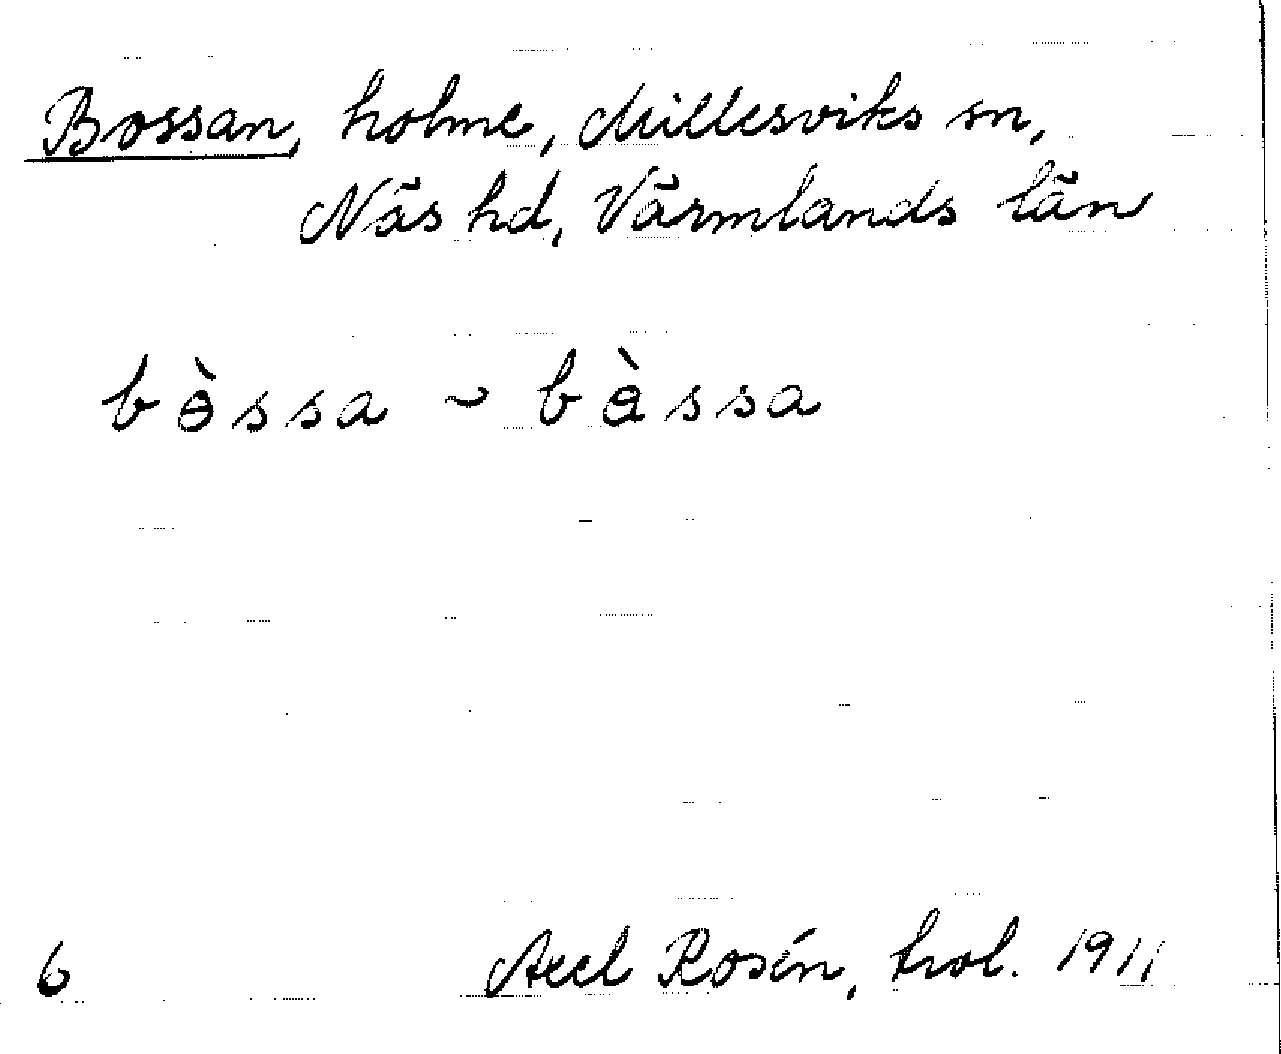 Bossan, holme, Millesviks sn,
Näs hd, Värmlands län
bòssa ~ bàssa
6 Axel Rosén, trol. 1911